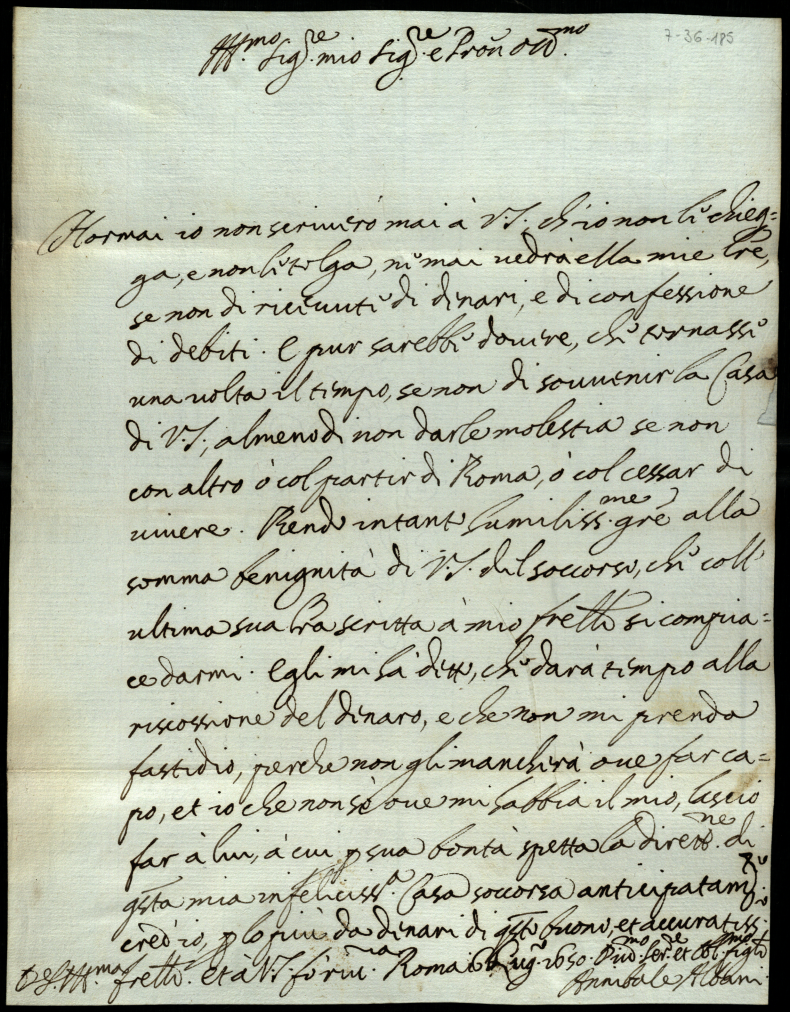 7-36-185
Ill.mo Sig.re mio Sig.re e Pron Oss.mo
Hormai io non scriverò mai à V.S. ch'io non li chieg=
ga, e non li tolga, nè mai vedrà ella mie lre,
se non di ricevuti di dinari, e di confessione
di debiti. E pur sarebbe dovere, che tornasse
una volta il tempo, se non di sovvenir la Casa
di V.S., almeno di non darle molestia se non
con altro ò col partir di Roma, ò col cessar di
vivere. Rendo intanto humiliss.me gre alla
somma benignità di V.S. del soccorso, che coll'
ultima sua lra scritta à mio frello si compia=
ce darmi. Egli mi hà detto, che darà tempo alla
riscossione del dinaro, e che non mi prenda
fastidio, perche non gli mancherà ove far ca=
po, et io che non sò ove mi habbia il mio, lascio
far à lui, à cui p sua bontà spetta la dirett.ne di
qsta mia infeliciss.a Casa soccorsa anticipatam.te
cred'io, p lo più da dinari di qsto buono, et accuratiss.o
frello. et à V.S. fo riv.za Roma 6 Lug.o 1650.
Di V.S. Ill.ma
Div.mo Ser.re et Obl.mo
Annibale Albani